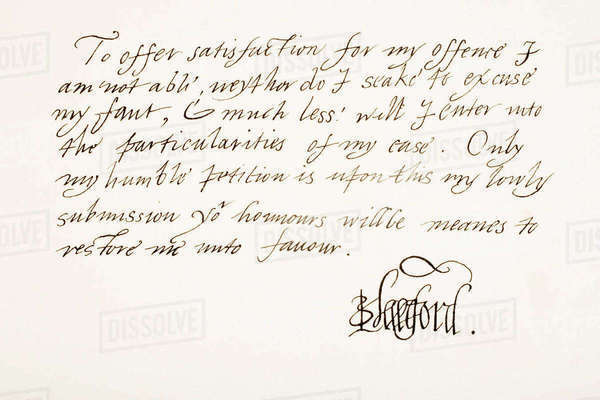 To offer satisfaction for my offence I
am not able, neythor do I seake to excuse
my faut, & much less will I enter into
the particularities of my case. Only
my humble petition is upon this my lowly
submission yor honnours wilbe meanes to
restore me unto favour.
DISSOLVE